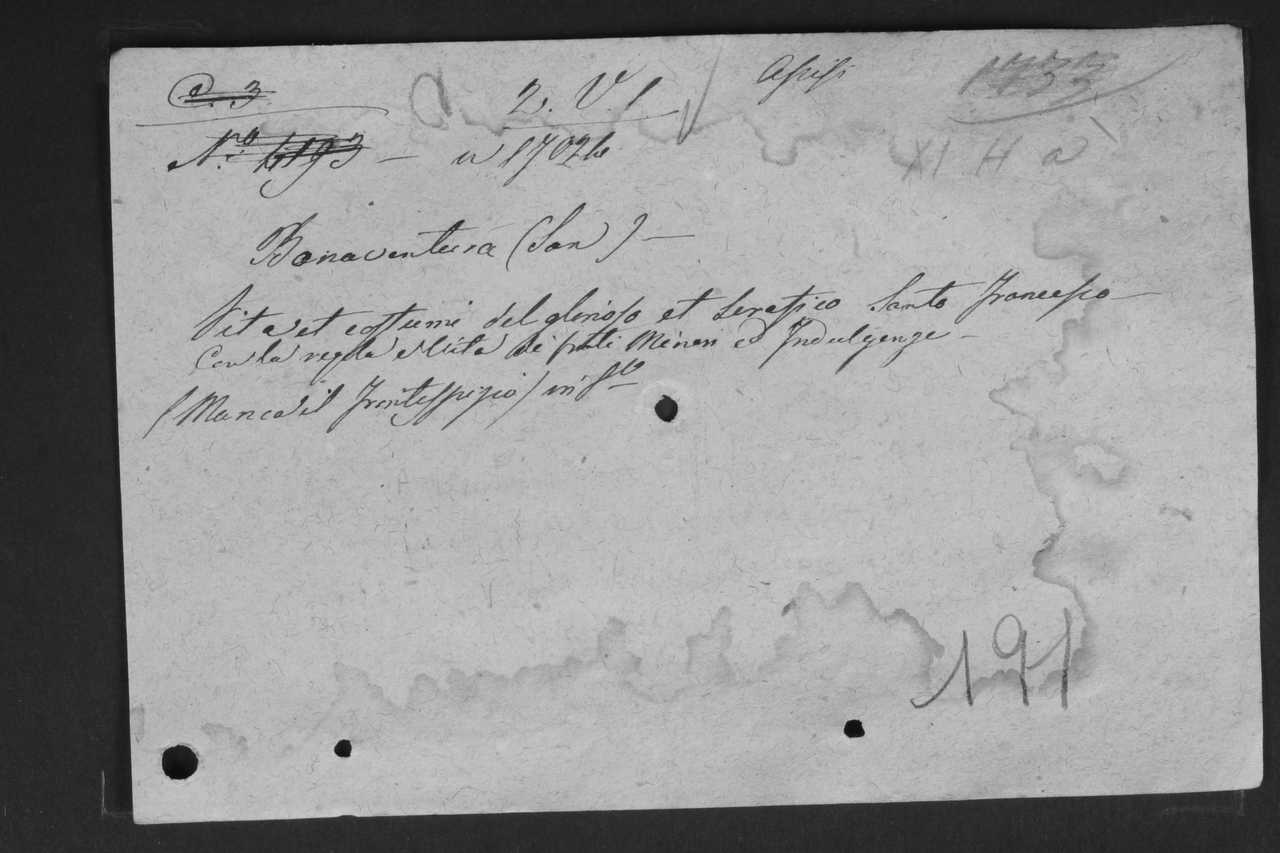 C. 3
2. V. 1
Assisi
1733
N.º 4193 — n 17026
XI H a
Bonaventura (San) —
Vita et costumi del glorioso et Serafico Santo Francesco —
Con la regola e Vita de' frati Minori ed Indulgenze —
(Manca il Frontespizio) in 8º
191